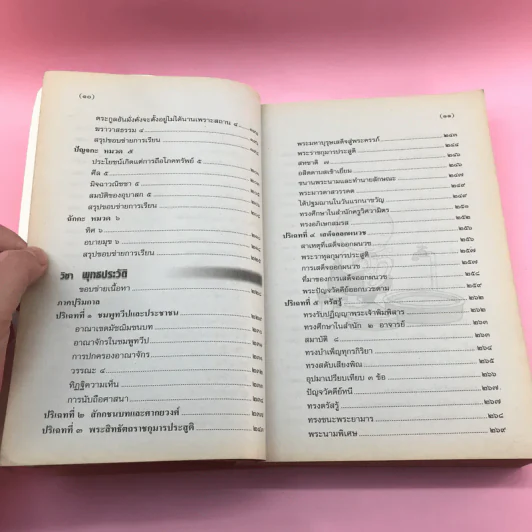 (๑๐)
ตระกูลอันมั่งคั่งจะตั้งอยู่ไม่ได้นานเพราะสถาน ๔
ฆราวาสธรรม ๔
สรุปขอบข่ายการเรียน
ปัญจกะ หมวด ๕
ประโยชน์เกิดแต่การถือโภคทรัพย์ ๕
ศีล ๕
มิจฉาวณิชชา ๕
สมบัติของอุบาสก ๕
สรุปขอบข่ายการเรียน
ฉักกะ หมวด ๖
ทิศ ๖
อบายมุข ๖
สรุปขอบข่ายการเรียน
วิชา พุทธประวัติ
ขอบข่ายเนื้อหา
ภาคปุริมกาล
ปริเฉทที่ ๑ ชมพูทวีปและประชาชน
อาณาเขตมัชฌิมชนบท
อาณาจักรในชมพูทวีป
การปกครองอาณาจักร
วรรณะ ๔
ทิฏฐิความเห็น
การนับถือศาสนา
ปริเฉทที่ ๒ สักกชนบทและศากยวงศ์
ปริเฉทที่ ๓ พระสิทธัตถราชกุมารประสูติ
(๑๑)
พระมหาบุรุษเสด็จสู่พระครรภ์ ๒๔๓
พระราชกุมารประสูติ ๒๔๔
สหชาติ ๗ ๒๔๖
อสิตดาบสเข้าเยี่ยม ๒๔๖
ขนานพระนามและทำนายลักษณะ ๒๔๗
พระมารดาสวรรคต ๒๔๙
ได้ปฐมฌานในวันแรกนาขวัญ
ทรงศึกษาในสำนักครูวิศวามิตร
ทรงอภิเษกสมรส
ปริเฉทที่ ๔ เสด็จออกผนวช ๒๕๖
สาเหตุที่เสด็จออกผนวช ๒๕๖
พระราหุลกุมารประสูติ ๒๕๗
การเสด็จออกผนวช ๒๕๗
ที่มาของการเสด็จออกผนวช ๒๕๙
พระปัญจวัคคีย์ออกบวชตาม
ปริเฉทที่ ๕ ตรัสรู้ ๒๖๒
ทรงรับปฏิญญาพระเจ้าพิมพิสาร ๒๖๒
ทรงศึกษาในสำนัก ๒ อาจารย์ ๒๖๓
สมาบัติ ๘ ๒๖๓
ทรงบำเพ็ญทุกรกิริยา ๒๖๔
ทรงสดับเสียงพิณ ๒๖๕
อุปมาเปรียบเทียบ ๓ ข้อ ๒๖๖
ปัญจวัคคีย์หนี ๒๖๗
ทรงตรัสรู้ ๒๖๗
ทรงชนะพระยามาร ๒๖๘
พระนามพิเศษ ๒๖๙